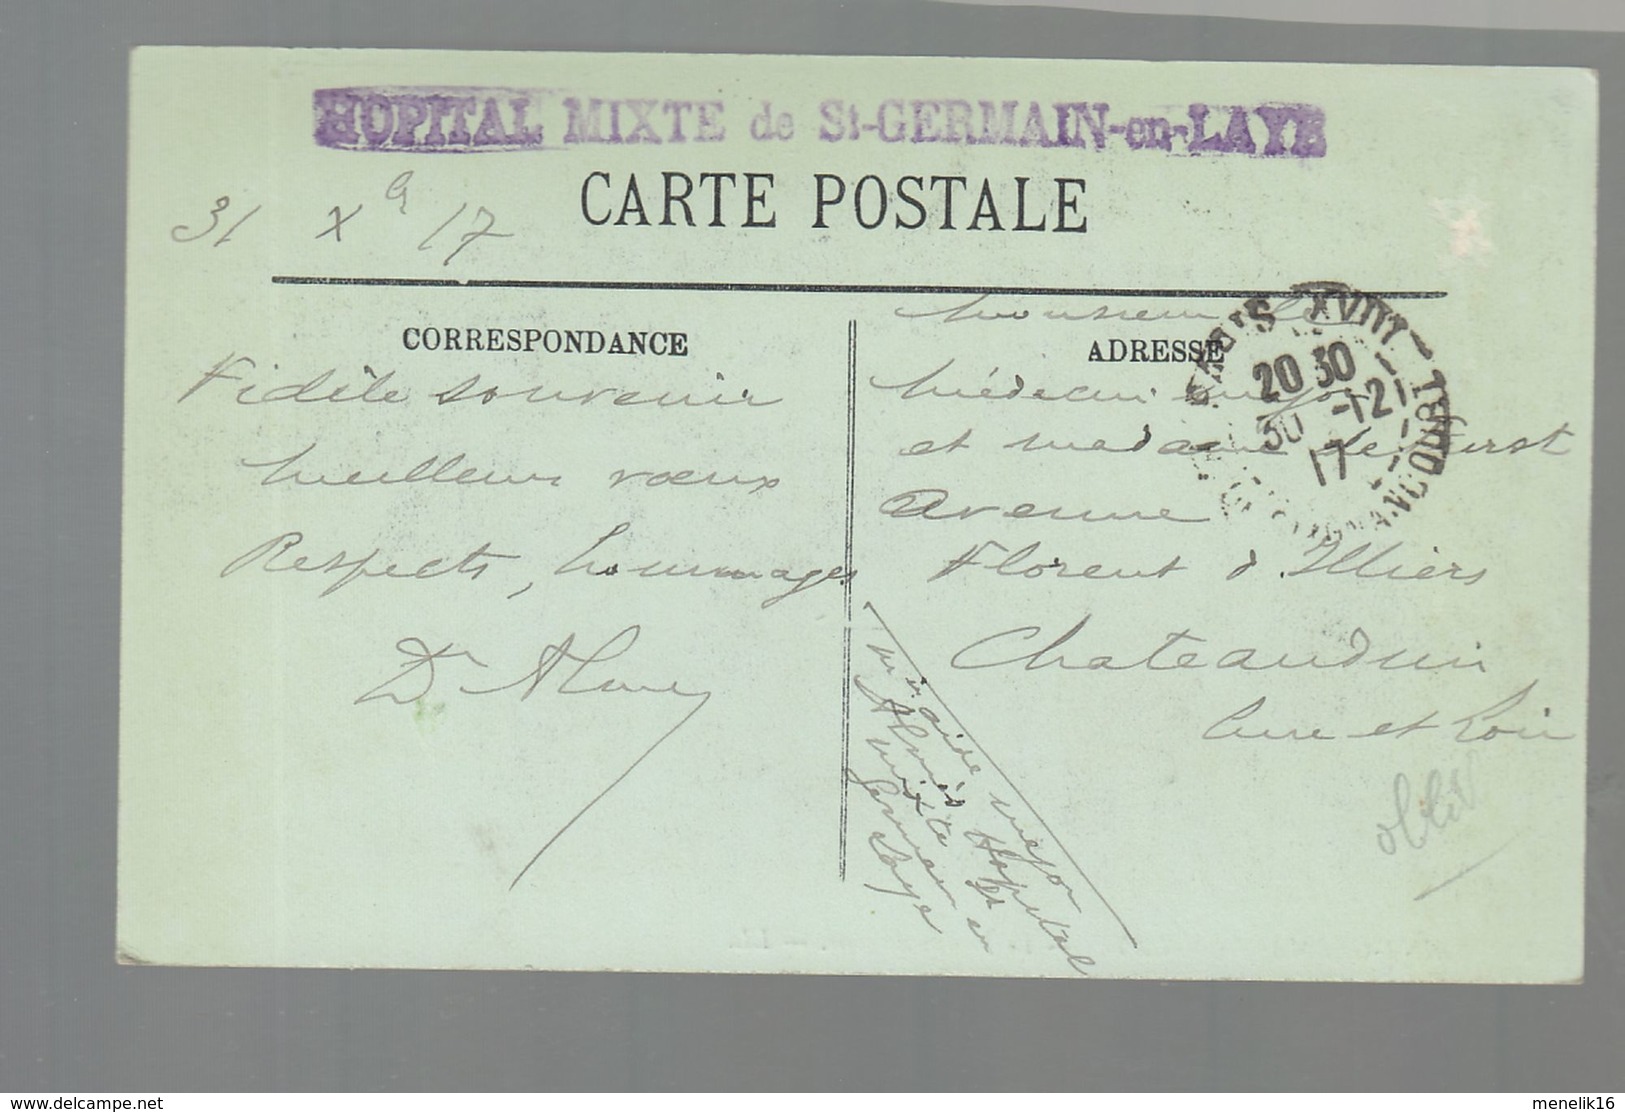 HOPITAL MIXTE de St-GERMAIN-en-LAYE
CARTE POSTALE
31 X 17
CORRESPONDANCE
Fidèle souvenir
meilleurs vœux
Respects, hommages
Dr
ADRESSE
Monsieur le
Médecin major
et madame
Avenue
Florent d'Illiers
Chateaudun
Eure et Loir
PARIS XVIII
20 30
30 -12
17
aide major
Hopital
mixte
St Germain en
Laye
www.delcampe.net
menelik16